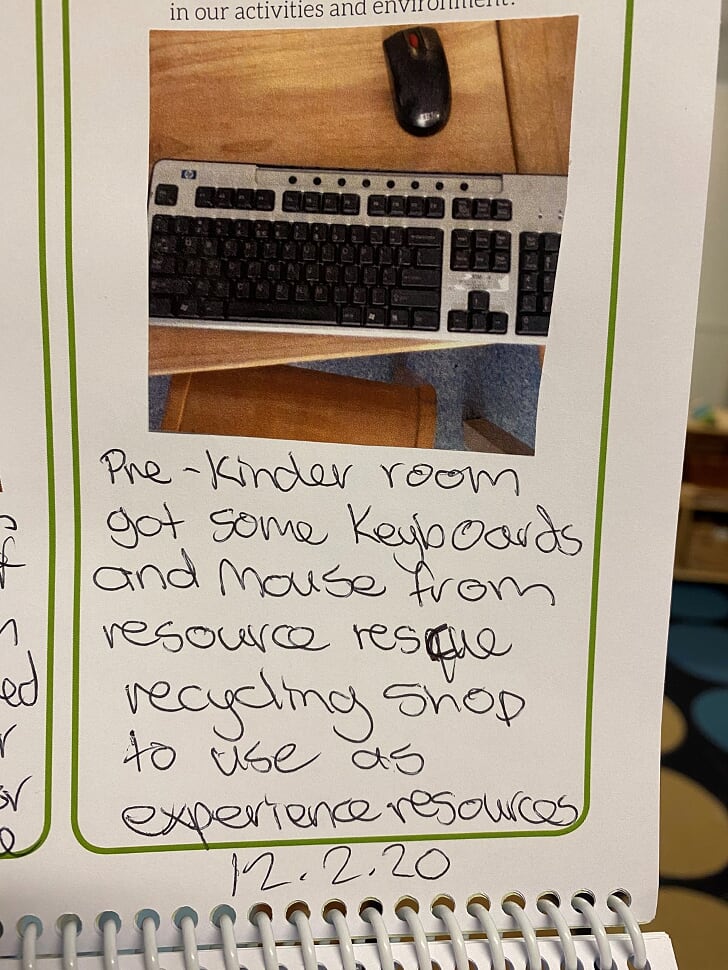 in our activities and environment?
hp
Pre-Kinder room
got some Keyboards
and Mouse from
resource resque
recycling shop
to use as
experience resources
12.2.20
ed